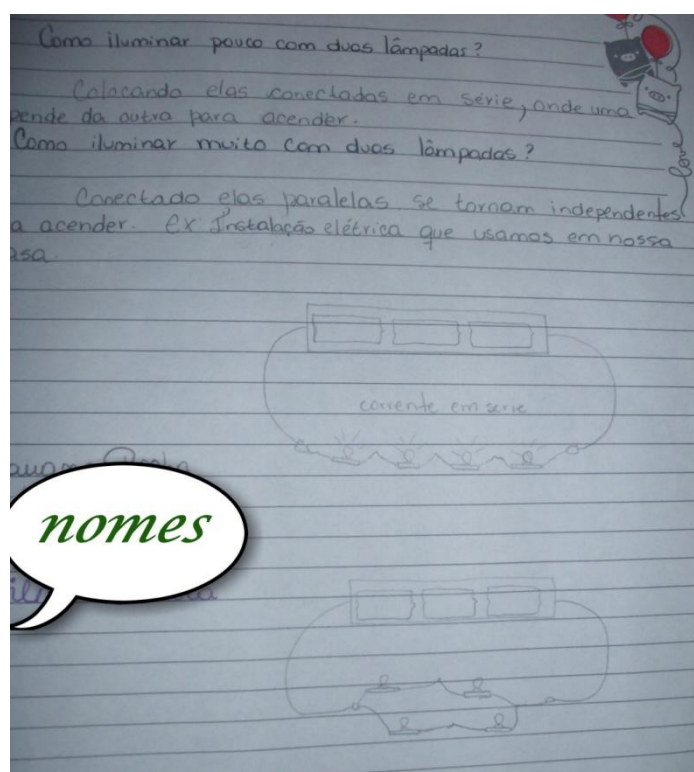 Como iluminar pouco com duas lâmpadas?
Colocando elas conectadas em série, onde uma
pende da outra para acender.
Como iluminar muito com duas lâmpadas?
Conectado elas paralelas se tornam independentes
a acender. Ex Instalação elétrica que usamos em nossa
asa.
corrente em serie
nomes
love